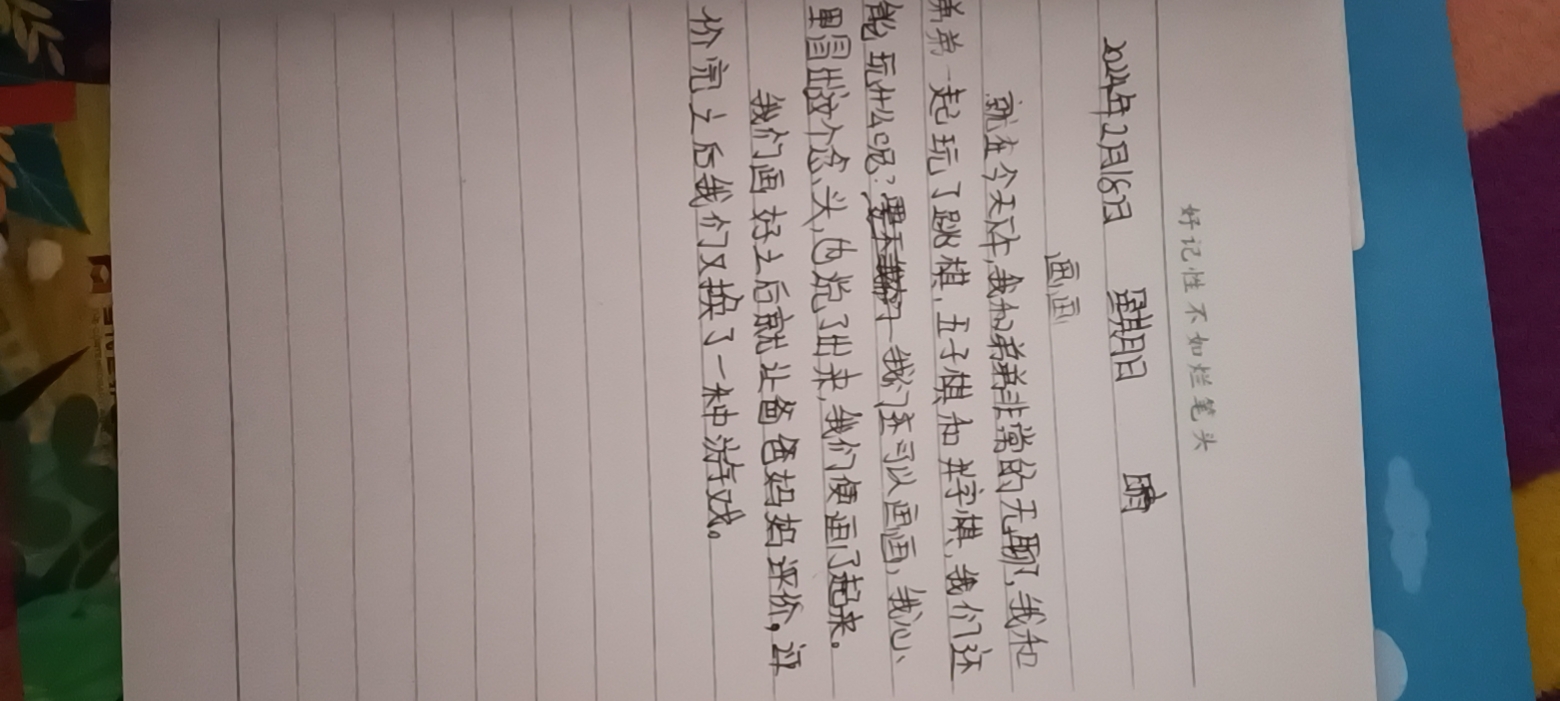 好记性不如烂笔头
2024年2月18日 星期日 晴
画画
就在今天下午,我和弟弟非常的无聊,我和
弟弟一起玩了跳棋,五子棋和井字棋,我们还
能玩什么呢?我们还可以画画,我心
里冒出这个念头,也说了出来,我们便画了起来。
我们画好之后就让爸爸妈妈评价,评
价完之后我们又换了一种游戏。